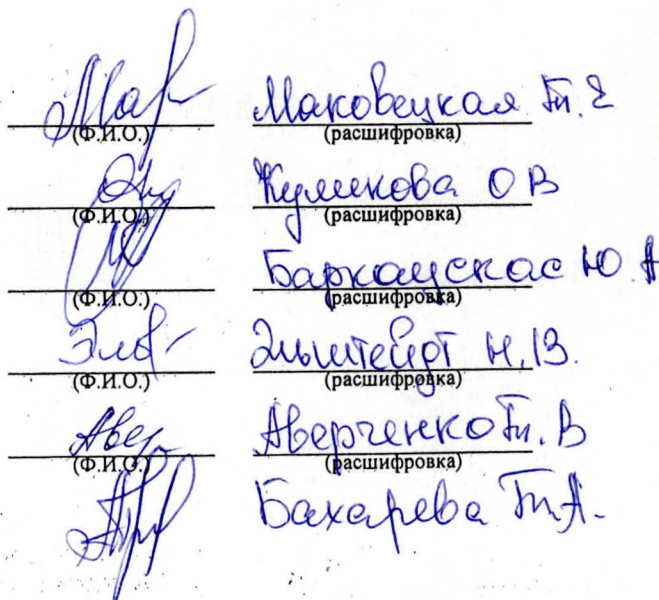 Мар Маковецкая Т. Е
(Ф.И.О.) (расшифровка)
Куликова О В
(Ф.И.О.) (расшифровка)
Баркаускас Ю. А
(Ф.И.О.) (расшифровка)
Эль Эльштейдт Н.В.
(Ф.И.О.) (расшифровка)
Авер Аверченко Т. В
(Ф.И.О.) (расшифровка)
Бахарева Т.А.